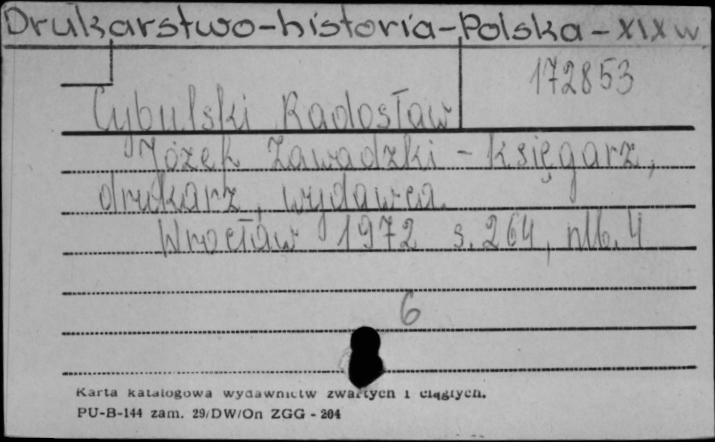 Drukarstwo-historia-Polska-XIX w
172853
Cybulski Radosław
Józef Zawadzki - księgarz,
drukarz, wydawca.
Wrocław 1972 s. 264, nlb. 4
6
Karta katalogowa wydawnictw zwartych i ciągłych.
PU-B-144 zam. 29/DW/On ZGG - 204